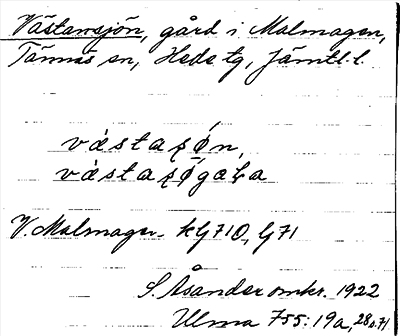 Västansjön, gård i Malmagen,
Tännäs sn, Hede tg, Jämtl. l.
væ̀staʂǿn,
væ̀staʂø̄gaɽa
V. Malmagen kG710, G71
S. Åsander omkr. 1922
Ulma 755:19a, 28 s. 71